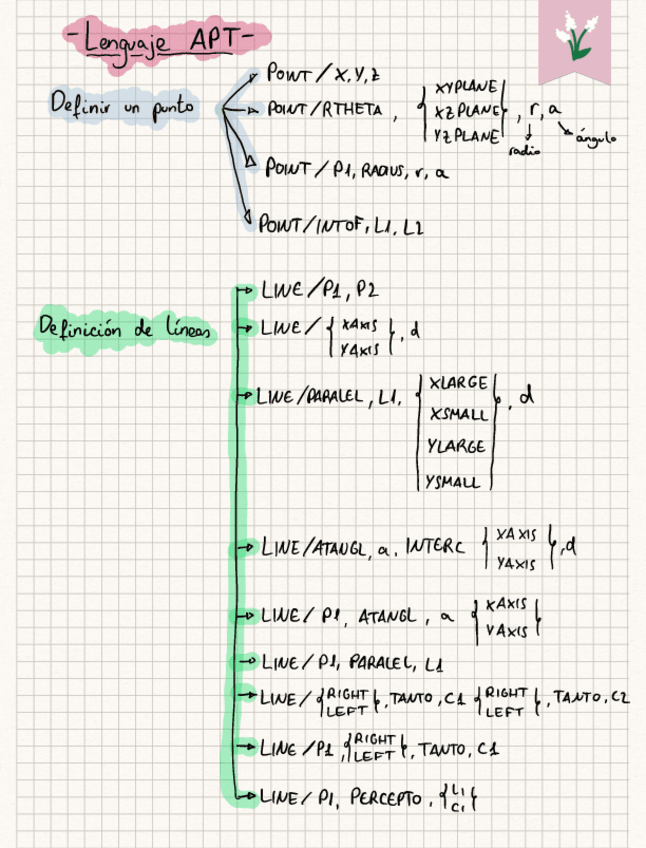 -Lenguaje APT-
Definir un punto
POINT/X,Y,Z
POINT/RTHETA, {XYPLANE XZPLANE YZPLANE}, r, a
radio
ángulo
POINT/P1, RADIUS, r, a
POINT/INTOF, L1, L2
Definición de líneas
LINE/P1, P2
LINE/{XAXIS YAXIS}, d
LINE/PARALEL, L1, {XLARGE XSMALL YLARGE YSMALL}, d
LINE/ATANGL, a, INTERC {XAXIS YAXIS}, d
LINE/P1, ATANGL, a {XAXIS YAXIS}
LINE/P1, PARALEL, L1
LINE/{RIGHT LEFT}, TANTO, C1 {RIGHT LEFT}, TANTO, C2
LINE/P1, {RIGHT LEFT}, TANTO, C1
LINE/P1, PERCEPTO, {L1 C1}